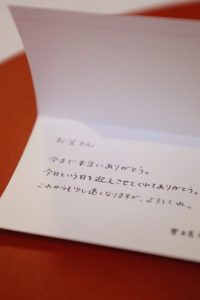 お父さん
今まで本当にありがとう。
今日という日を迎えさせてくれてありがとう。
これからも少し遠くなりますが、よろしくね。